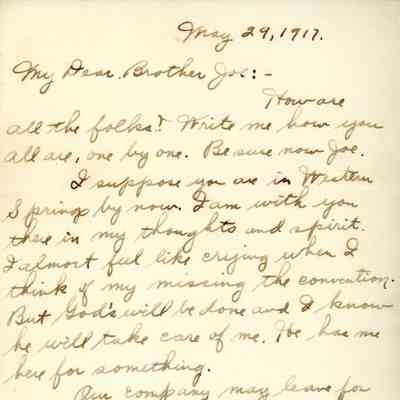 May 29, 1917.
My Dear Brother Joe:-
How are
all the folks? Write me how you
all are, one by one. Be sure now Joe.
I suppose you are in Western
Springs by now. I am with you
there in my thoughts and spirit.
I almost feel like crying when I
think of my missing the convention.
But God's will be done and I know
he will take care of me. He has me
here for something.
Our company may leave for